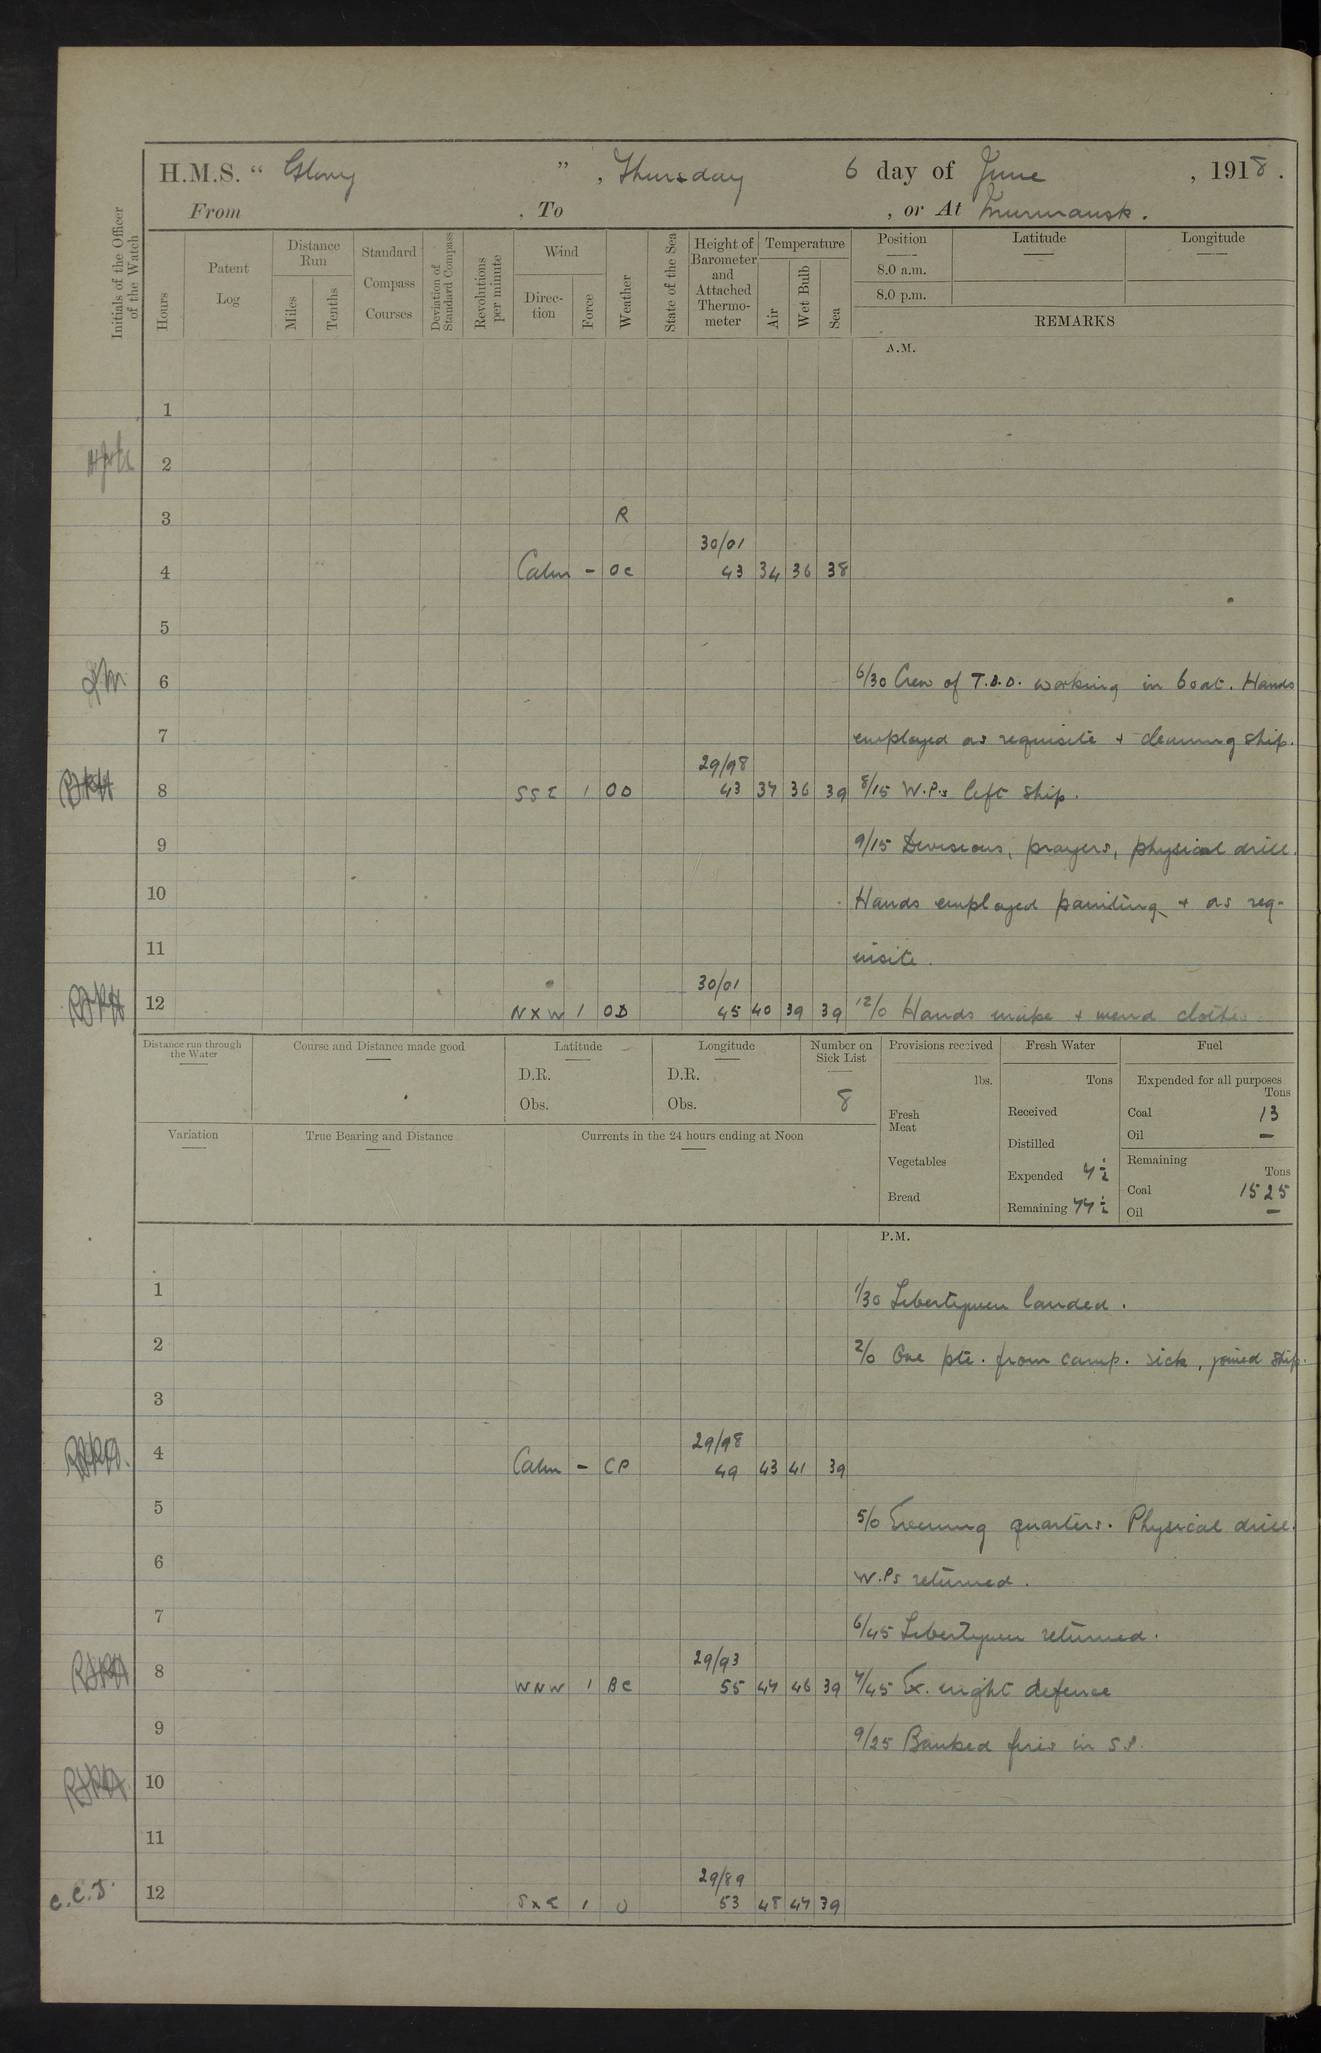 H.M.S. " Glory ", Thursday 6 day of June, 1918.
From , To , or At Murmansk.
Initials of the Officer of the Watch
Hours
Patent Log
Distance Run
Miles
Tenths
Standard Compass Courses
Deviation of Standard Compass
Revolutions per minute
Wind
Direc-tion
Force
Weather
State of the Sea
Height of Barometer and Attached Thermo-meter
Temperature
Air
Wet Bulb
Sea
Position
8.0 a.m.
8.0 p.m.
Latitude
Longitude
REMARKS
A.M.
1
2
3 R
30/01
4 Calm - oc 43 34 36 38
5
6 6/30 Crew of T.B.D. working in boat. Hands
7 employed as requisite + cleaning ship.
29/98
8 SSE 1 OD 43 37 36 39 8/15 W.P.s left ship.
9 9/15 Divisions, prayers, physical drill.
10 Hands employed painting + as req-
11 uisite.
30/01
12 NXW 1 OD 45 40 39 39 12/0 Hands make + mend clothes.
Distance run through the Water
Course and Distance made good
Latitude
D.R.
Obs.
Longitude
D.R.
Obs.
Number on Sick List
8
Provisions received
lbs.
Fresh Meat
Vegetables
Bread
Fresh Water
Tons
Received
Distilled
Expended 7½
Remaining 77½
Fuel
Expended for all purposes
Tons
Coal 13
Oil —
Remaining
Tons
Coal 1525
Oil —
Variation
True Bearing and Distance
Currents in the 24 hours ending at Noon
P.M.
1 1/30 Libertymen landed.
2 2/0 One pte. from camp. sick, joined ship.
3
29/98
4 Calm - CP 49 43 41 39
5 5/0 Evening quarters. Physical drill.
6 W.Ps returned.
7 6/45 Libertymen returned.
29/93
8 WNW 1 BC 55 47 46 39 7/45 Ex. night defence
9 9/25 Banked fires in S.P.
10
11
29/89
C.C.J. 12 SXE 1 O 53 48 47 39